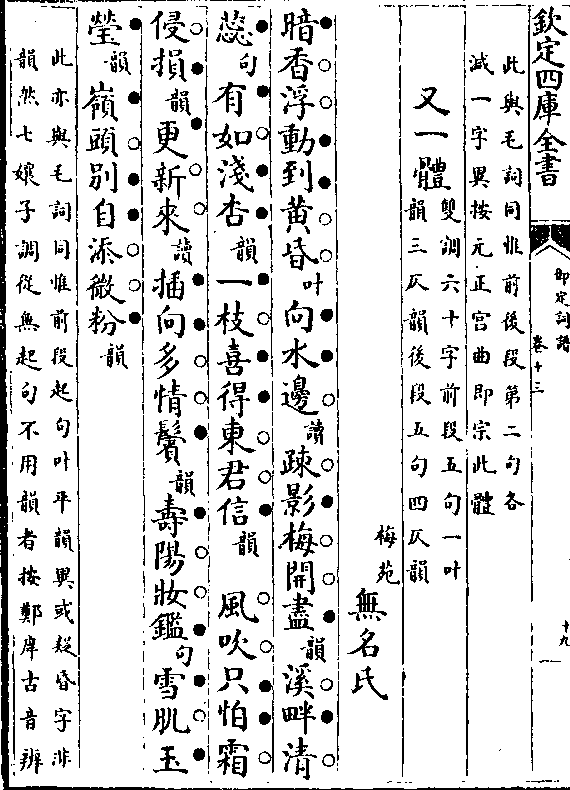 欽定四庫全書
御定詞譜
卷十三
十九
此與毛詞同惟前後段第二句各
減一字異按元正宫曲即宗此體
又一體
雙調六十字前段五句一叶
韻三仄韻後段五句四仄韻
梅苑
無名氏
暗香浮動到黄昏叶向水邊讀疎影梅開盡韻溪畔清
蕊句有如淺杏韻一枝喜得東君信韻 風吹只怕霜
侵損韻更新來讀插向多情鬢韻壽陽妝鑑句雪肌玉
瑩韻嶺頭别自添微粉韻
此亦與毛詞同惟前段起句叶平韻異或疑昏字非
韻然七孃子調從無起句不用韻者按鄭庠古音辨